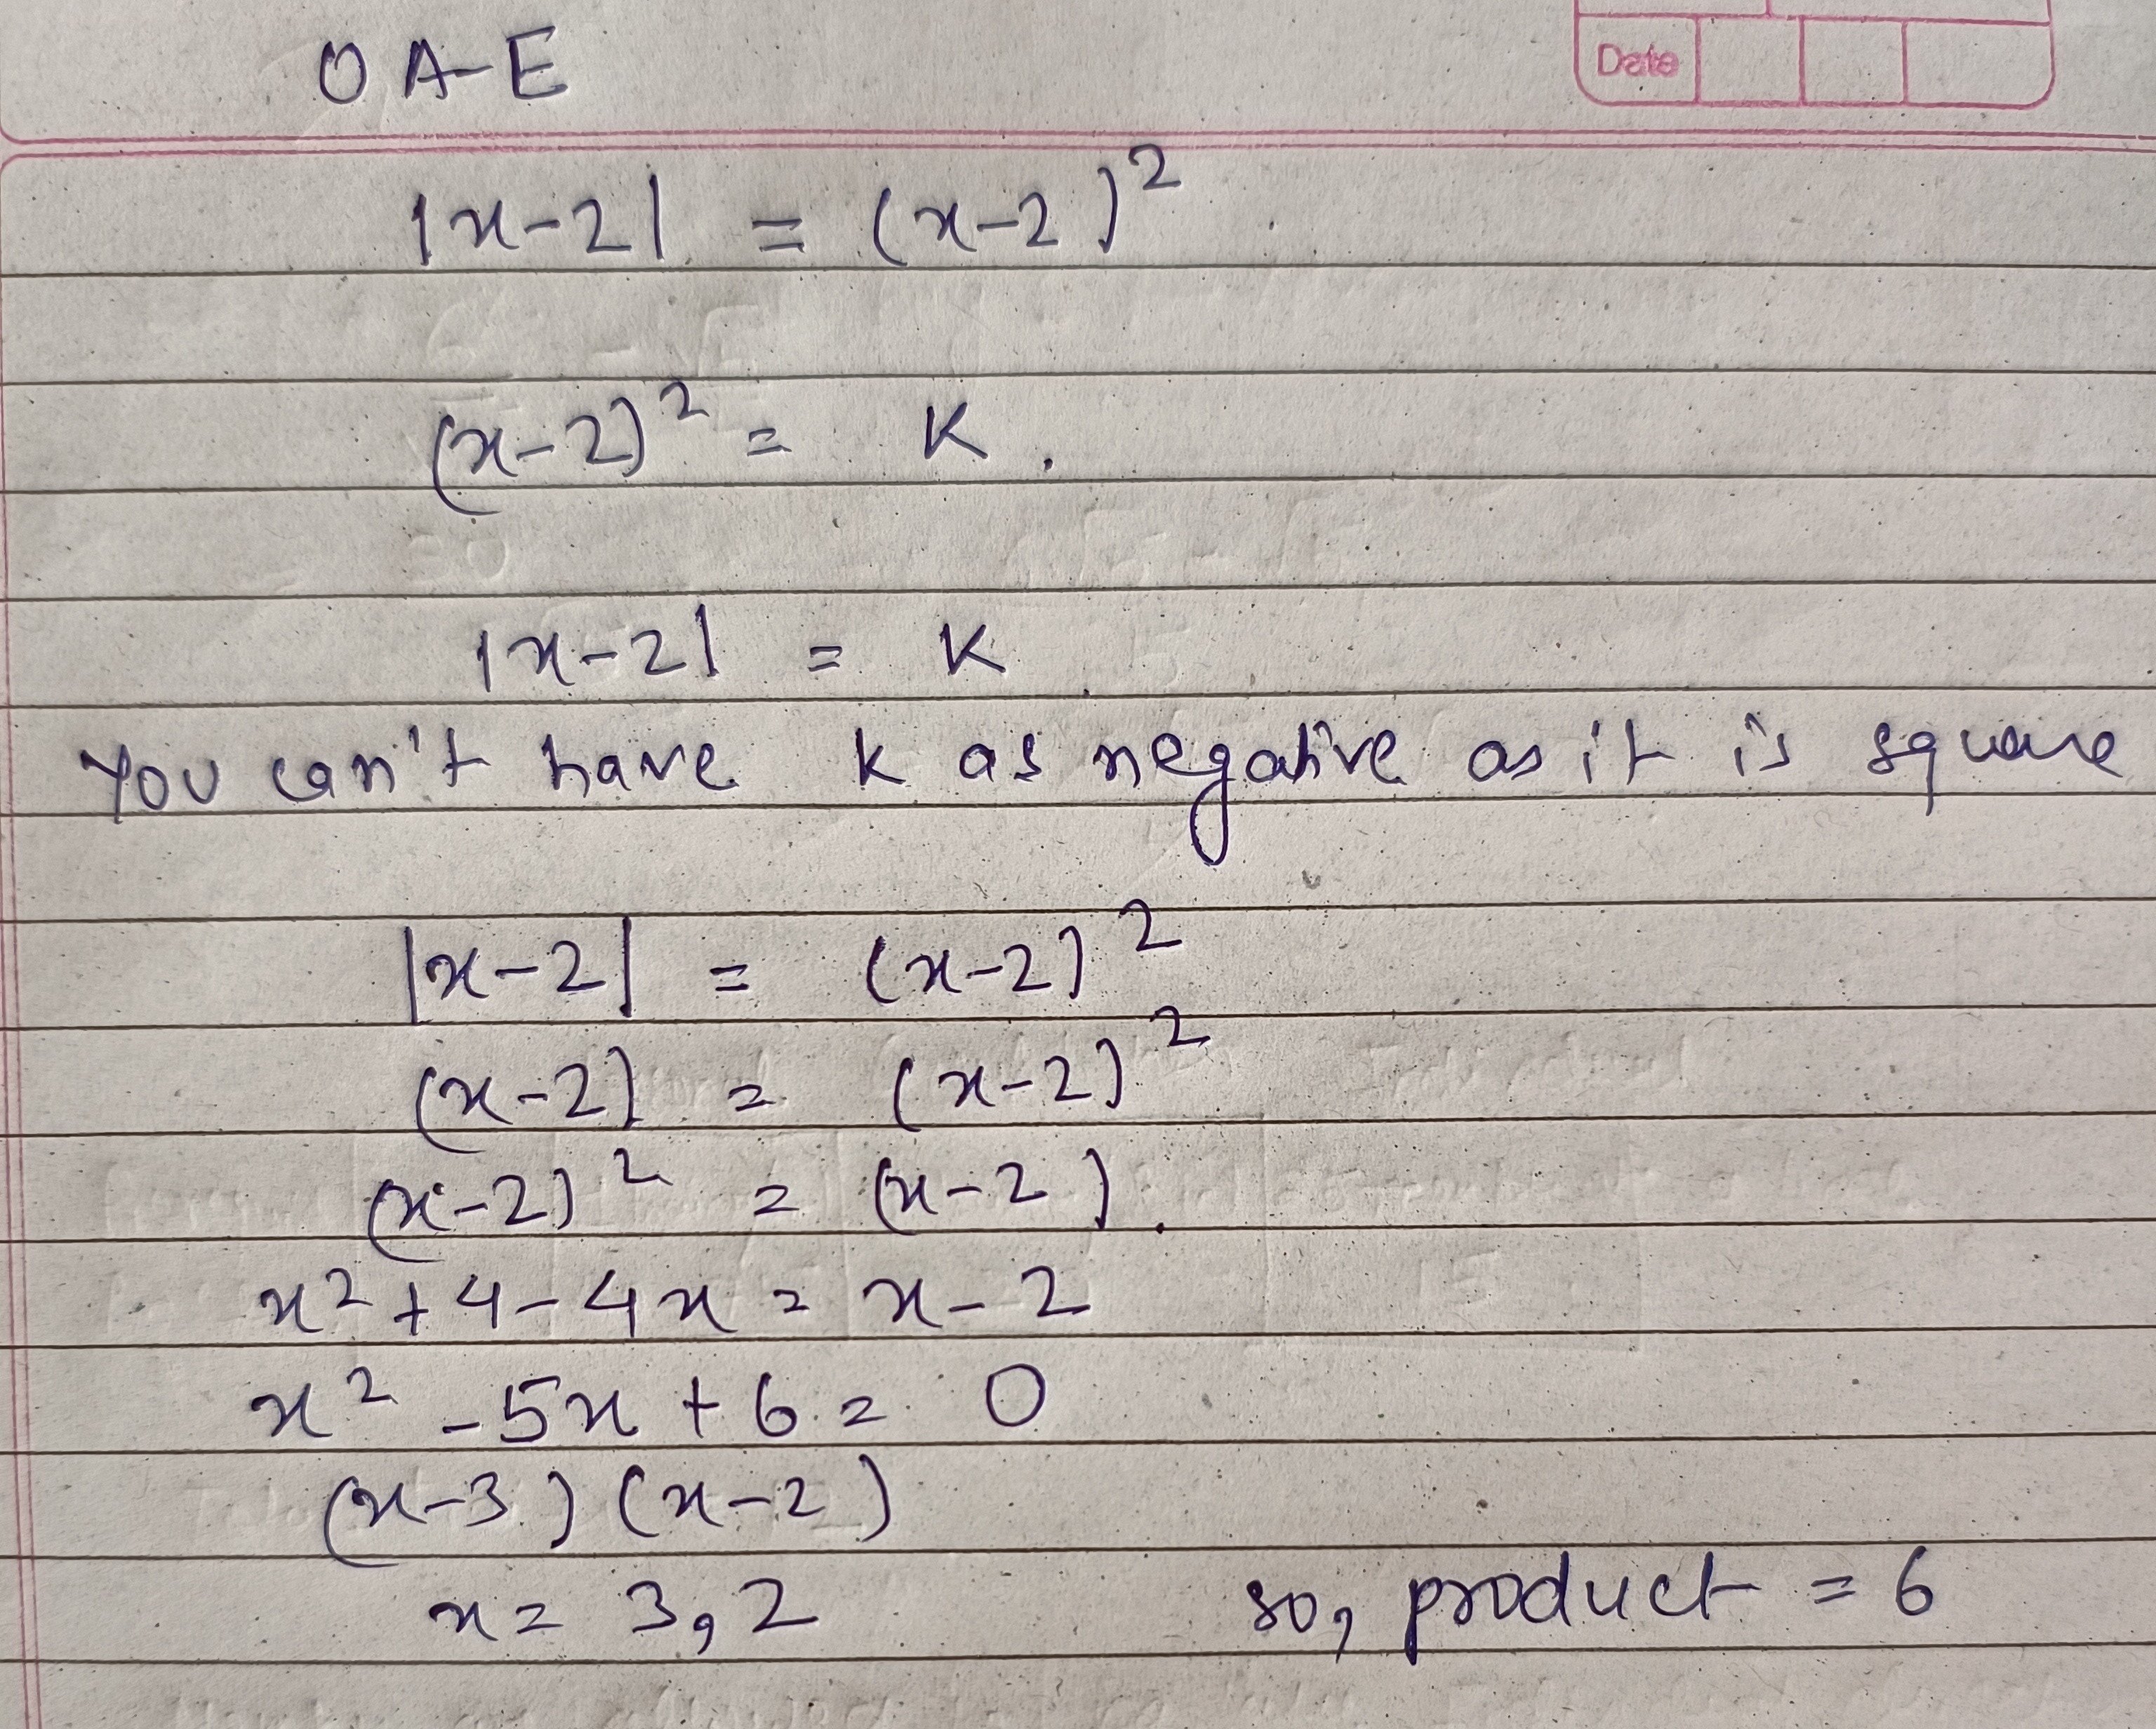 OA-E
Date
|x-2| = (x-2)²
(x-2)² = K.
|x-2| = K
You can't have K as negative as it is square
|x-2| = (x-2)²
(x-2) = (x-2)²
(x-2)² = (x-2).
x²+4-4x = x-2
x² -5x + 6 = 0
(x-3) (x-2)
x = 3, 2 so, product = 6